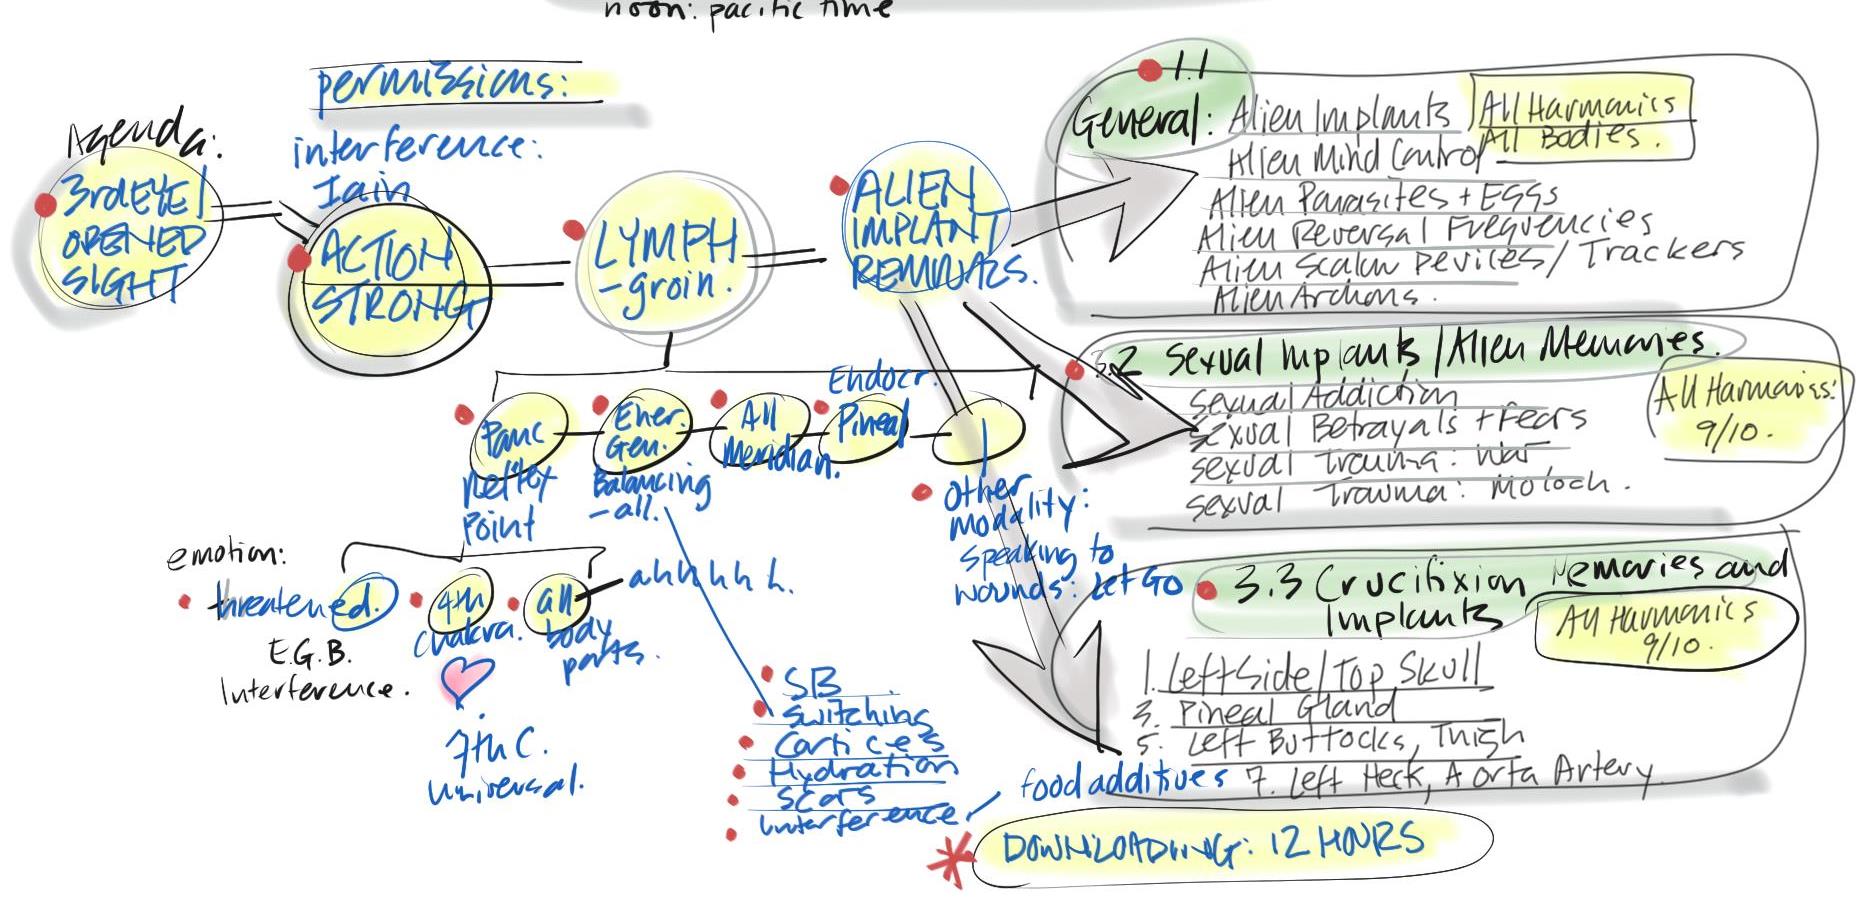 noon: pacific time
permissions:
Agenda:
interference:
Iain
3rd EYE/
OPENED
SIGHT
ACTION
STRONG
LYMPH
-groin.
ALIEN
IMPLANT
REMOVALS.
1.1
General: Alien Implants
Alien Mind Control
All Harmonics
All Bodies.
Alien Parasites + Eggs
Alien Reversal Frequencies
Alien Scalar Devices/Trackers
Alien Archons.
3.2 Sexual Implants/Alien Memories.
Sexual Addiction
Sexual Betrayals + Fears
Sexual Trauma: War
Sexual Trauma: Moloch.
All Harmonics:
9/10.
3.3 Crucifixion Memories and
Implants
All Harmonics
9/10.
1. Left Side/Top Skull
3. Pineal Gland
5. Left Buttocks, Thigh
7. Left Neck, Aorta Artery
Panc
Reflex
Point
Ener.
Gen.
Balancing
-all.
All
Meridian.
Endocr.
Pineal
Other
modality:
speaking to
wounds: Let Go
emotion:
threatened.
E.G.B.
Interference.
4th
chakra.
7th C.
universal.
all
body
parts.
ahhhhh.
SB
Switching
Cortices
Hydration
Scars
interference
food additives
DOWNLOADING: 12 HOURS